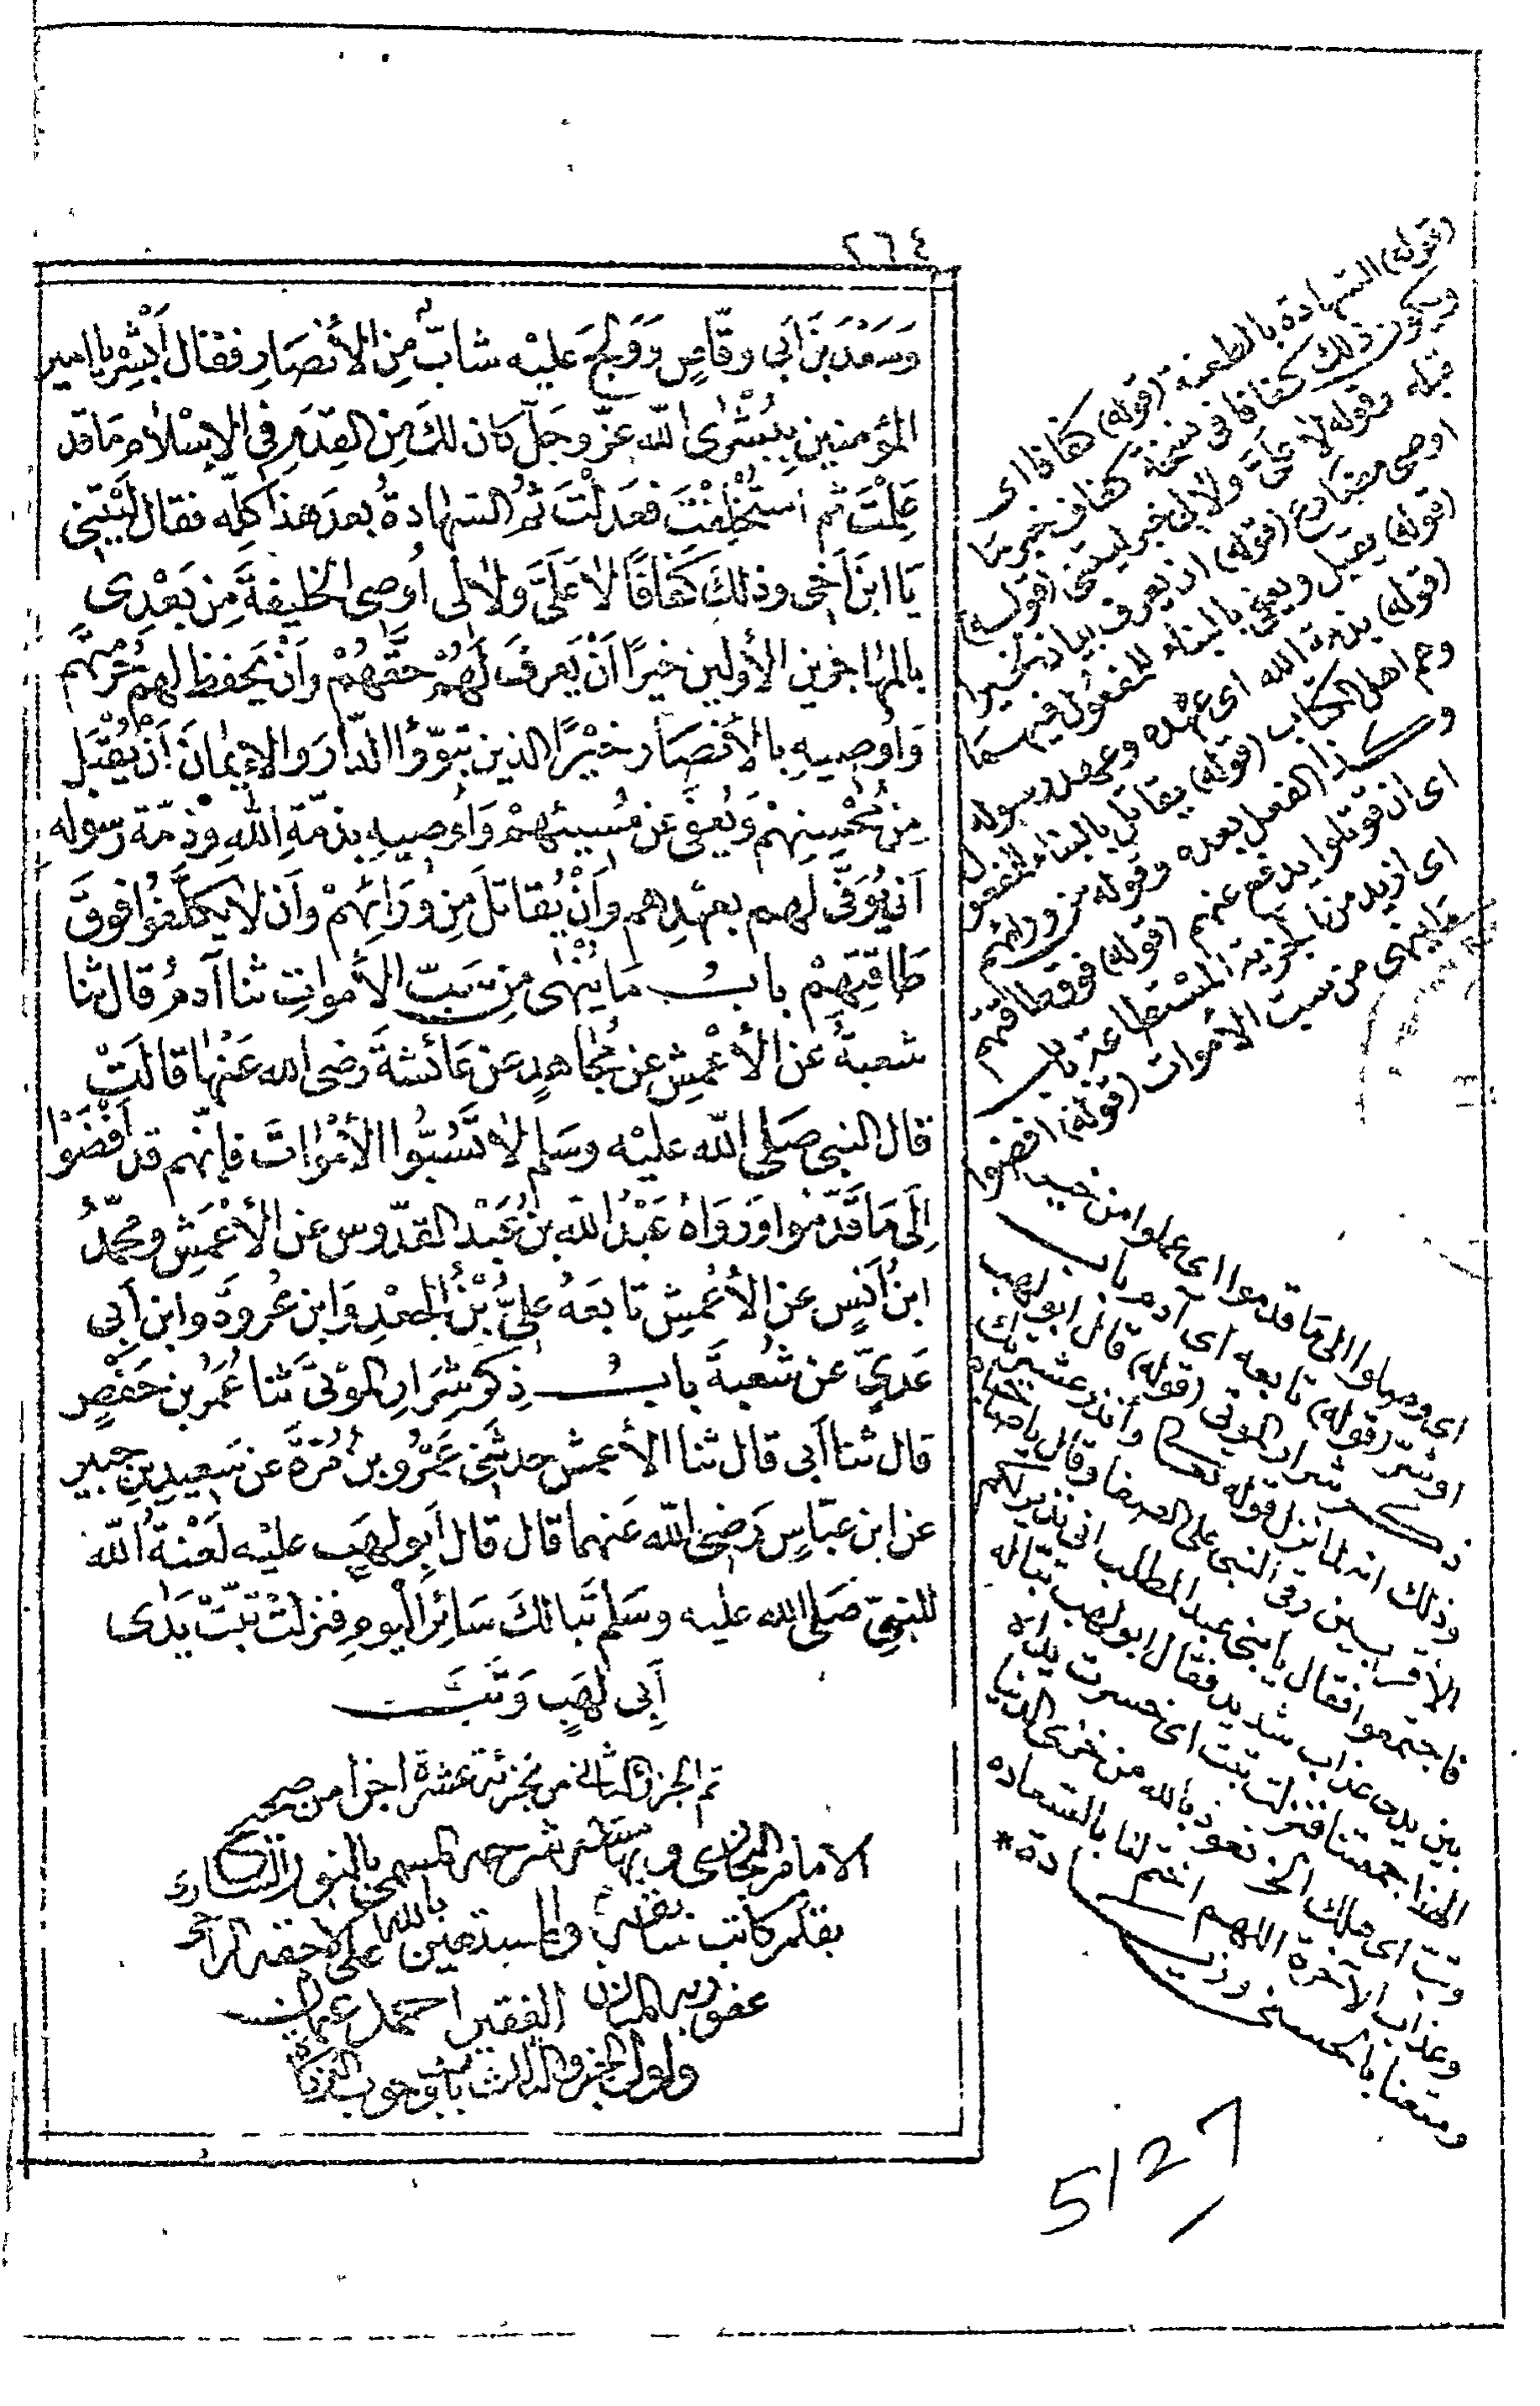 ٢٦٤
وَسَعْدَ بْنَ أَبِي وقّاصٍ وَوَلَجَ عليْه شابٌّ مِنَ الأنصَارِ فقال أَبْشِرْ يا امير
المؤمنين بِبُشْرَى اللّه عَزّ وجَلّ كان لكَ مِنَ القِدَمِ في الإسْلامِ مَا قد
عَلِمْتَ ثم اسْتُخْلِفْتَ فعَدَلْتَ ثمّ الشهَادةُ بعدَ هذا كلّه فقال لَيْتَنِي
يَا ابنَ أَخي وذلك كَفَافًا لا عَلَيَّ ولا لي أُوصي الخليفةَ مِن بَعْدِي
بالمهَاجرين الأولين خيرًا أنْ يَعرفَ لَهُمْ حقَّهُمْ وأنْ يَحفظ لهم حُرْمتَهم
وَأوصيهِ بالأَنصَار خيْرًا الذين تبوّؤا الدّارَ والإيمانَ أنْ يُقْبَل
مِن مُحْسِنِهِمْ وَيُعْفَى عَن مُسِيئهمْ وَأُوصيهِ بذمّةِ اللهِ وذمّة رسوله
أن يُوَفَّى لهم بعَهْدِهم وأنْ يُقاتَلَ مِن وَرَائِهمْ وأن لا يكلَّفُوا فوقَ
طَاقَتِهِمْ بابُ مَا يُنْهَى مِن سَبّ الأمواتِ ثنا آدمُ قال ثنا
شعبةُ عن الأعْمَشِ عن مُجَاهدٍ عَن عَائشةَ رضى الله عَنْهَا قالَتْ
قال النبي صَلى اللّه عليْه وسَلم لا تَسُبُّوا الأمْوَاتَ فإنّهم قد أَفْضَوْا
إلَى مَا قَدّمُوا وَرَوَاهُ عَبْدُ اللّه بنُ عَبْد القدّوس عن الأعْمَشِ ومُحمّدُ
ابنُ أنَسٍ عن الأعْمشِ تابعَهُ عليُّ بْنُ الجعْدِ وَابن عَرْعَرَةَ وابن أبي
عَدِيّ عن شعْبةَ بابُ ذِكْرِ شِرَارِ الموْتَى ثنا عُمَرُ بن حَفصٍ
قال ثنا أبي قال ثنا الأعمش حدثَنِي عَمْرُو بنُ مُرّةَ عن سَعيدِ بنِ جبير
عن ابن عبّاسٍ رَضي اللّه عَنهما قال قال أبو لهَبٍ عليْه لَعْنَةُ اللّه
للنبيّ صَلى الله عليه وسَلم تَبًّا لكَ سَائِرَ اليَومِ فنزلتْ تَبّتْ يَدَى
أَبِي لَهَبٍ وَتَبَّ
تم الجزء الثاني من تجزئة عشرة اجزا من صحيح
الامام البخارى وبهامشه شرحه المسمى بالنور السارى
بقلم كاتب والمستعين بالله على
عفو ربه المنان الفقير احمد
واول الجزء الثالث باب وجوب الزكاة
(قوله) الشهادة بالطعنة (قوله) كفافا اى
ويكون ذلك كفافا فى نسخة كفاف خبر
قبله وقوله لا علىّ ولا لى خبر ليتنى (قوله)
اوصى مضارع (قوله) ان يعرف بيان لخيرا
(قوله) يقبل ويعفى بالبناء للمفعول فيهما
(قوله) بذمة الله اى عهده وعهد رسوله
وهم اهل الكتاب (قوله) يقاتل بالبناء للمفعول
وكذا الفعل بعده وقوله من ورائهم
اى ان قوتلوا يدفع عنهم (قوله) فوق طاقتهم
اى ازيد من الجزية المستطاعة باب
ما ينهى من سبّ الاموات (قوله) افضوا
اى وصلوا الى ما قدموا اى عملوا من خير
او شر (قوله) تابعه اى آدم باب
ذكر شرار الموتى (قوله) قال ابو لهب
وذلك انه لما نزل قوله تعالى وأنذر عشيرتك
الأقربين رقى النبي على الصفا وقال يا صباحاه
فاجتمعوا فقال يا بنى عبد المطلب انى نذير لكم
بين يدى عذاب شديد فقال ابو لهب تبّا له
الهذا جمعتنا فنزلت تبت اى خسرت يداه
وتب اى هلك نعوذ بالله من خزى الدنيا
وعذاب الآخرة اللهم اختم لنا بالسعاده
ومتعنا بالحسنى وزيادة *
5127